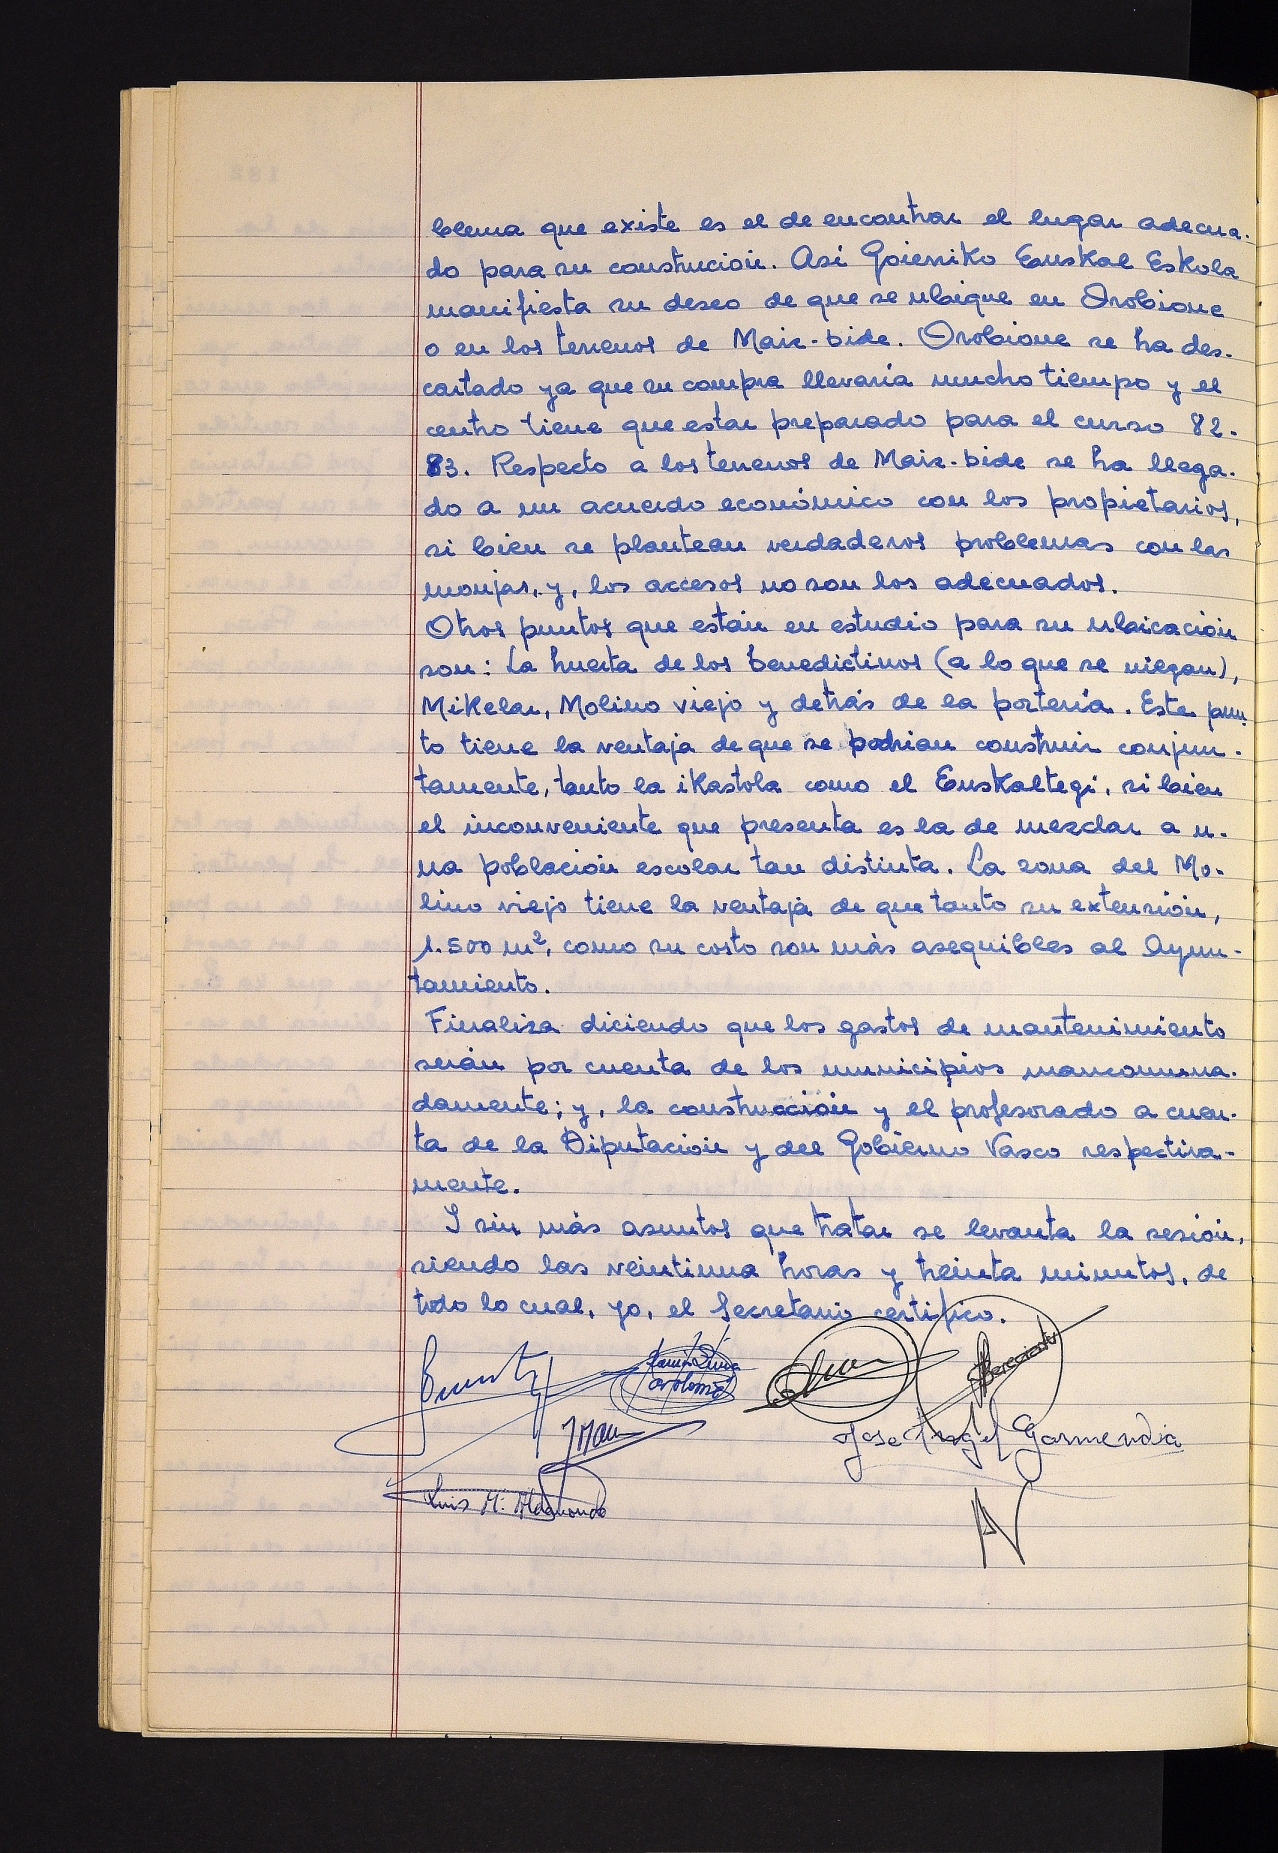 blema que existe es el de encontrar el lugar adecua-
do para su construcioin. Asi Goierriko Euskal Eskola
manifiesta su deseo de que se ubique en Orobione
o en los terrenos de Maix-bide. Orobione se ha des-
cartado ya que su compra llevaría mucho tiempo y el
centro tiene que estar preparado para el curso 82-
83. Respecto a los terrenos de Maix-bide se ha llega-
do a un acuerdo económico con los propietarios,
si bien se plantean verdaderos problemas con las
monjas, y, los accesos no son los adecuados.
Otros puntos que están en estudio para su ubicación
son: La huerta de los benedictinos (a lo que se niegan),
Mikelar, Molino viejo y detrás de la portería. Este pun
to tiene la ventaja de que se podrian construir conjun-
tamente, tanto la ikastola como el Euskaltegi, si bien
el inconveniente que presenta es la de mezclar a u-
na población escolar tan distinta. La zona del Mo-
lino viejo tiene la ventaja de que tanto su extensión,
1.500 m², como su costo son más asequibles al Ayun-
tamiento.
Finaliza diciendo que los gastos de mantenimiento
serán por cuenta de los municipios mancomuna-
damente; y, la construcción y el profesorado a cuen-
ta de la Diputación y del Gobierno Vasco respectiva-
mente.
Y sin más asuntos que tratar se levanta la sesión,
siendo las veintiuna horas y treinta minutos, de
todo lo cual, yo, el Secretario certifico.
Jose Angel Garmendia
Luis M. Aldanondo